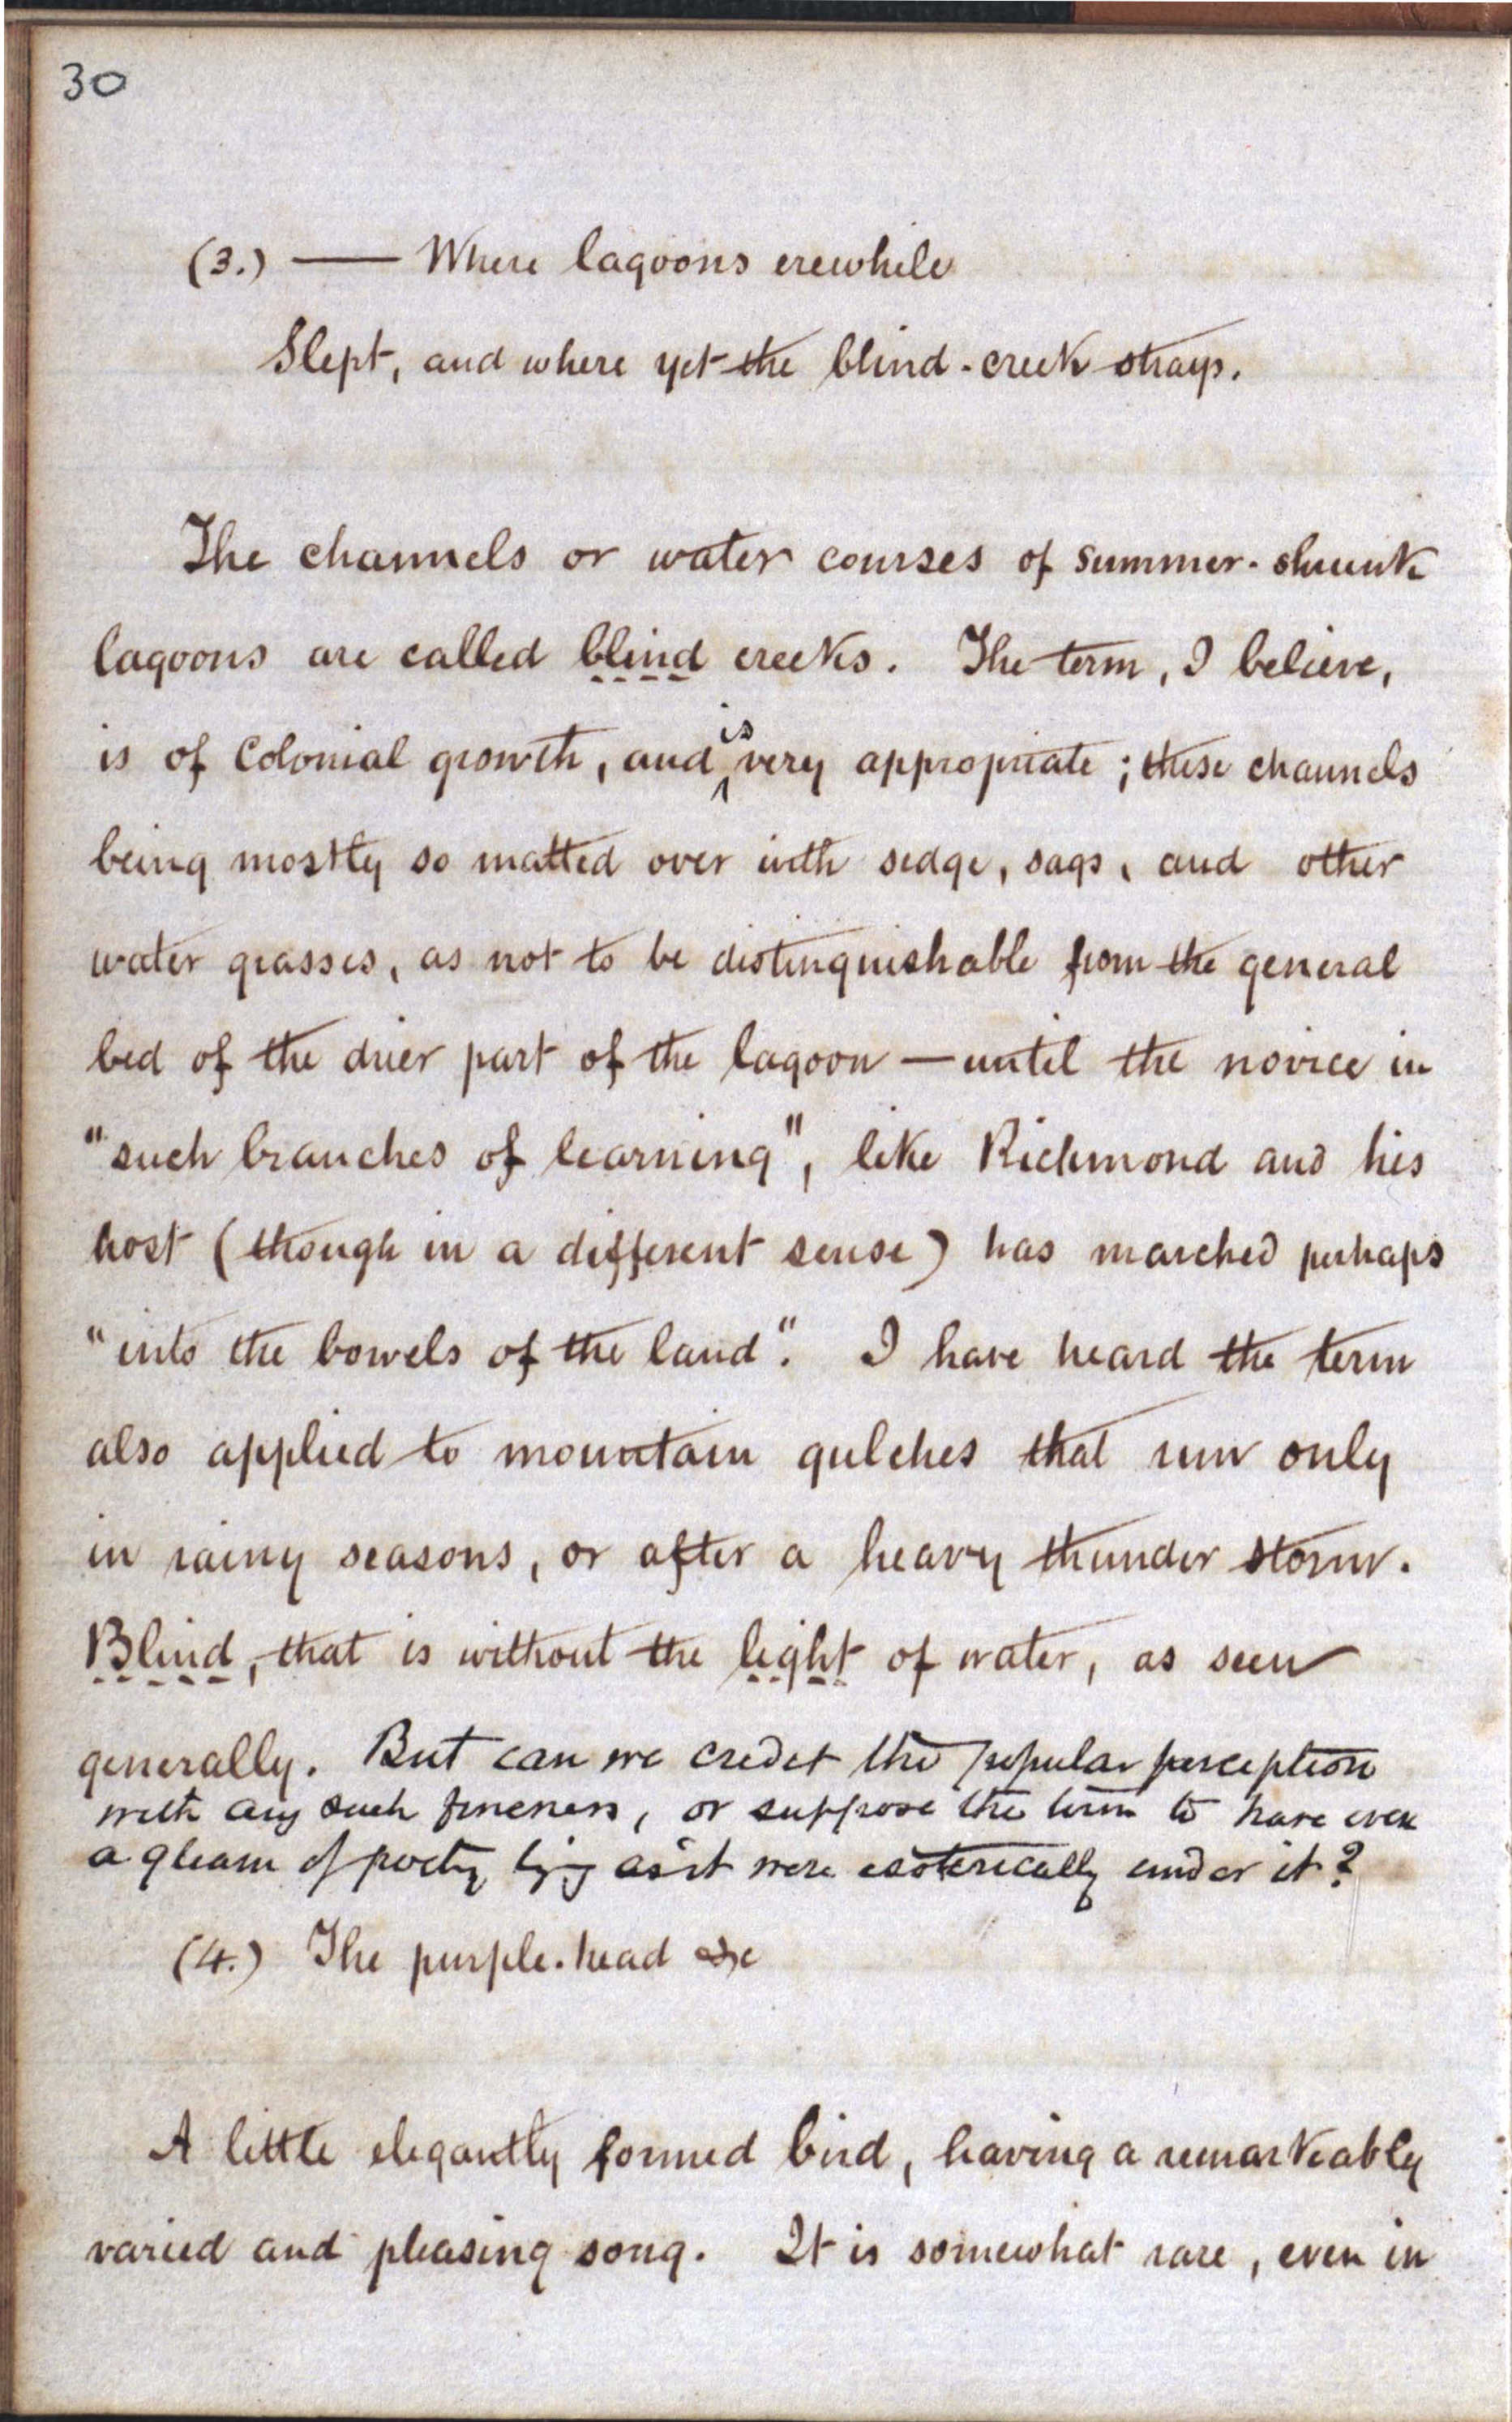 30
(3.) —— Where lagoons erewhile
Slept, and where yet the blind-creek strays.
The channels or water courses of summer-shrunk
lagoons are called blind creeks. The term, I believe,
is of Colonial growth, and is very appropriate; these channels
being mostly so matted over with sedge, sags, and other
water grasses, as not to be distinguishable from the general
bed of the drier part of the lagoon — until the novice in
"such branches of learning", like Richmond and his
host (though in a different sense) has marched perhaps
"into the bowels of the land". I have heard the term
also applied to mountain gulches that run only
in rainy seasons, or after a heavy thunder storm.
Blind, that is without the light of water, as seen
generally. But can we credit the popular perception
with any such fineness, or suppose the term to have even
a gleam of poetry lying as it were esoterically under it?
(4.) The purple-head &c
A little elegantly formed bird, having a remarkeably
varied and pleasing song. It is somewhat rare, even in